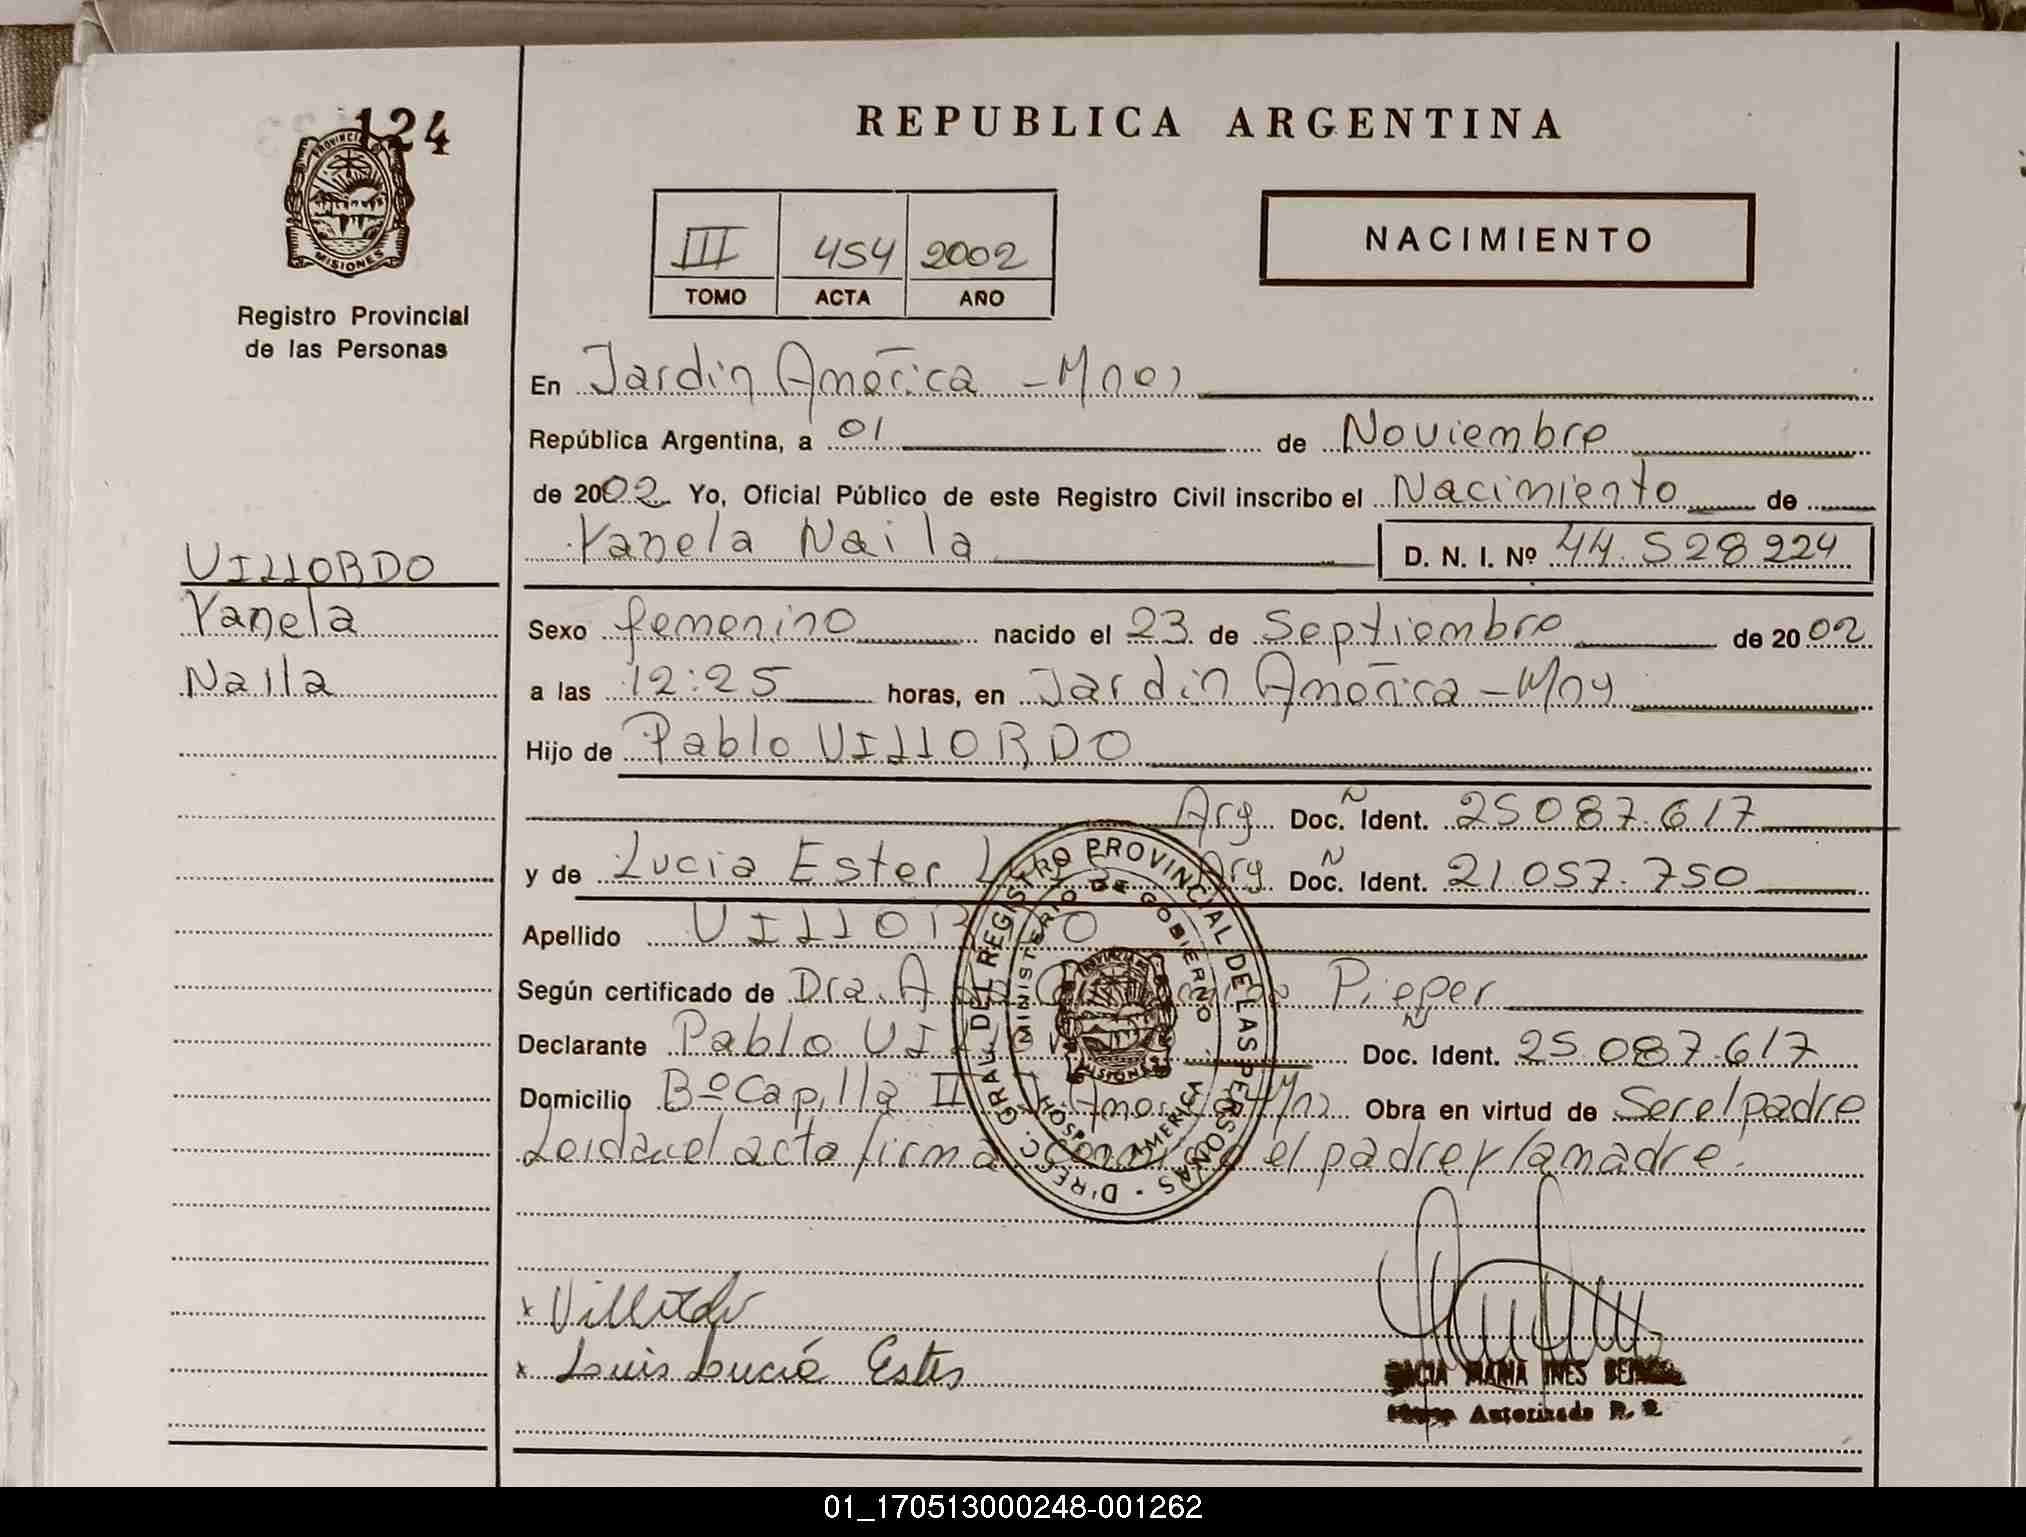 124
PROVINCIA DE
MISIONES
Registro Provincial
de las Personas
VILLORDO
Yanela
Naila
REPUBLICA ARGENTINA
III 454 2002
TOMO ACTA AÑO
NACIMIENTO
En Jardin América - Mnes
República Argentina, a 01 de Noviembre
de 2002 Yo, Oficial Público de este Registro Civil inscribo el Nacimiento de
Yanela Naila D. N. I. Nº 44.528224
Sexo femenino nacido el 23 de Septiembre de 2002
a las 12:25 horas, en Jardin América - Mns
Hijo de Pablo VILLORDO
Arg Doc. Ident. 25087.617
y de Lucia Ester Arg Doc. Ident. 21057.750
Apellido VILLORDO
Según certificado de Dra. Pieper
Declarante Pablo Doc. Ident. 25.087.617
Domicilio Bº Capilla II Mns Obra en virtud de Ser el padre
Leida el acta firma conmigo el padre y la madre.
DIRECC. GRAL. DEL REGISTRO PROVINCIAL DE LAS PERSONAS
MINISTERIO DE GOBIERNO
MISIONES
HOSP. AMERICA
x Villordo
x Luis Lucia Ester
MARIA INES
Autorizada
01_170513000248-001262